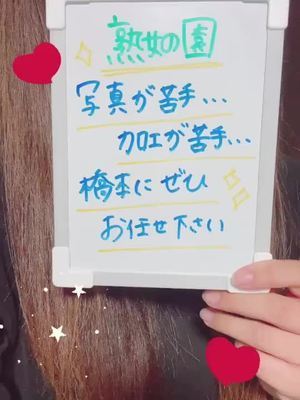 熟女の園
写真が苦手...
加工が苦手...
橋本にぜひ
お任せ下さい